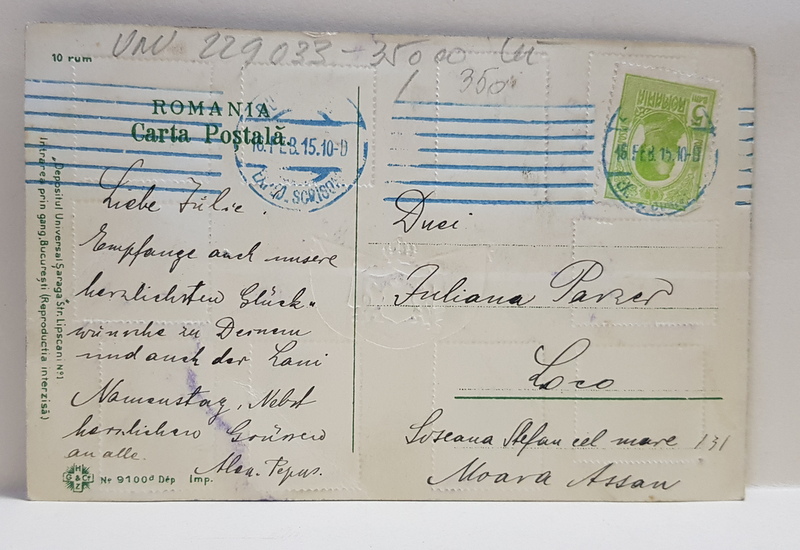 VNV 229033 - 35000 Lei
350
10 rum
ROMANIA
Carta Poștală.
16.FEB.15.10-D
16.FEB.15.10-D
5
ROMANIA
"Depositul Universal Șaraga" Str. Lipscani No 1
Intrarea prin gang, București (Reproductia interzisă)
Liebe Julie!
Empfange auch unsere
herzlichsten Glück-
wünsche zu Deinem
und auch der Lani
Namenstag, Nebst
herzlichen Grüssen
an alle.
Alex.
Duei
Juliana Parzer
Loco
Soseaua Stefan cel mare 131
Moara Assan
H G & Co Z
No 9100d Dép Imp.